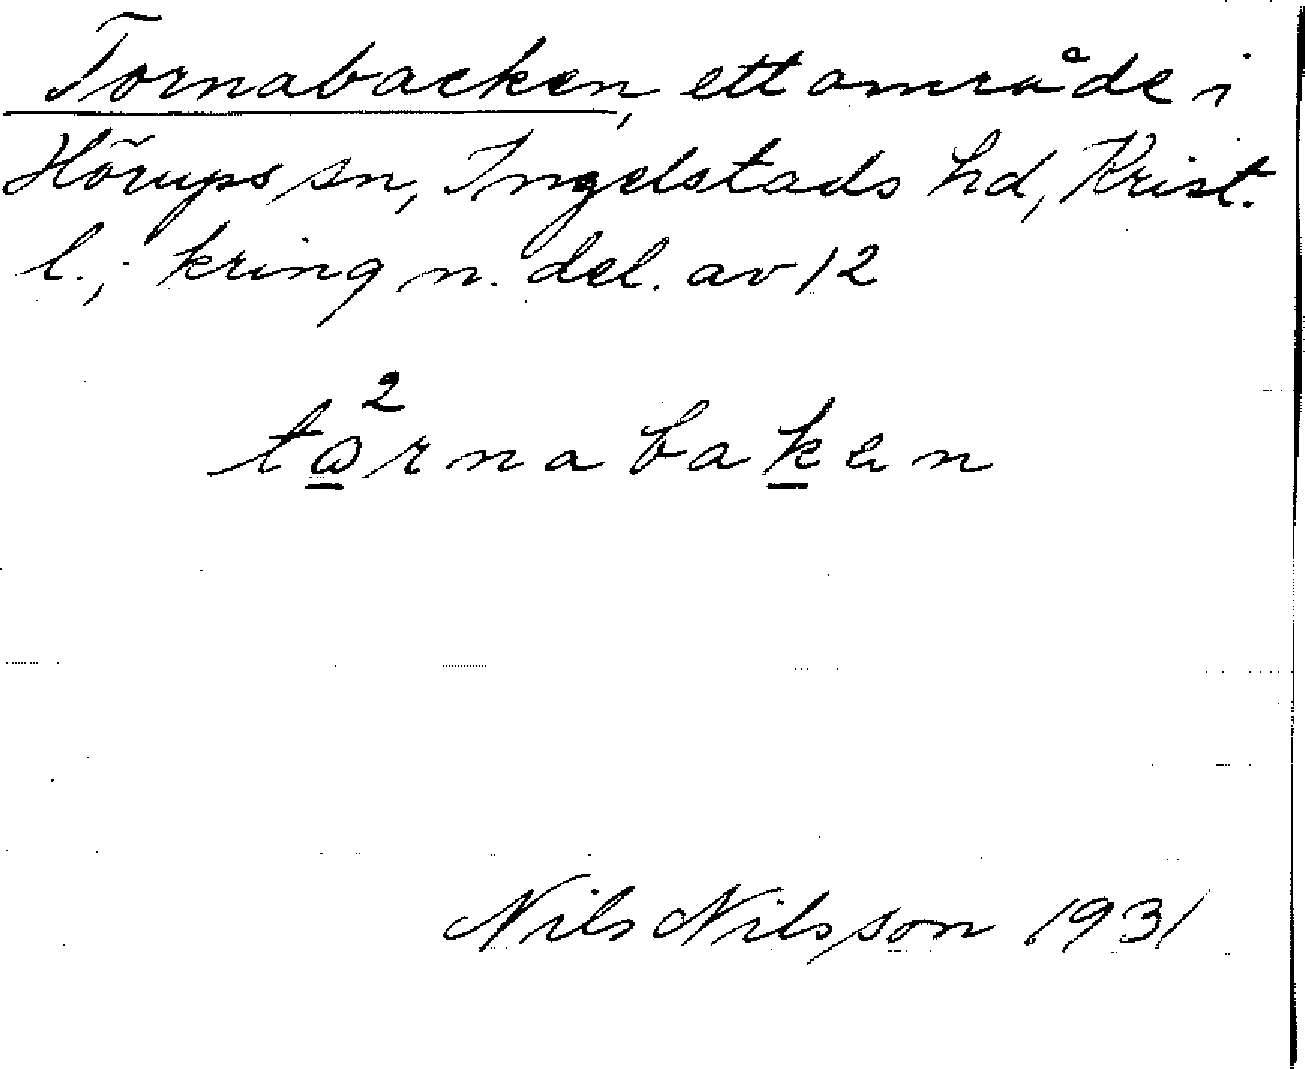 Tornabacken, ett område i
Hörups sn, Ingelstads hd, Krist.
l.; kring n. del. av 12
tɷ²rnabakɘn
Nils Nilsson 1931